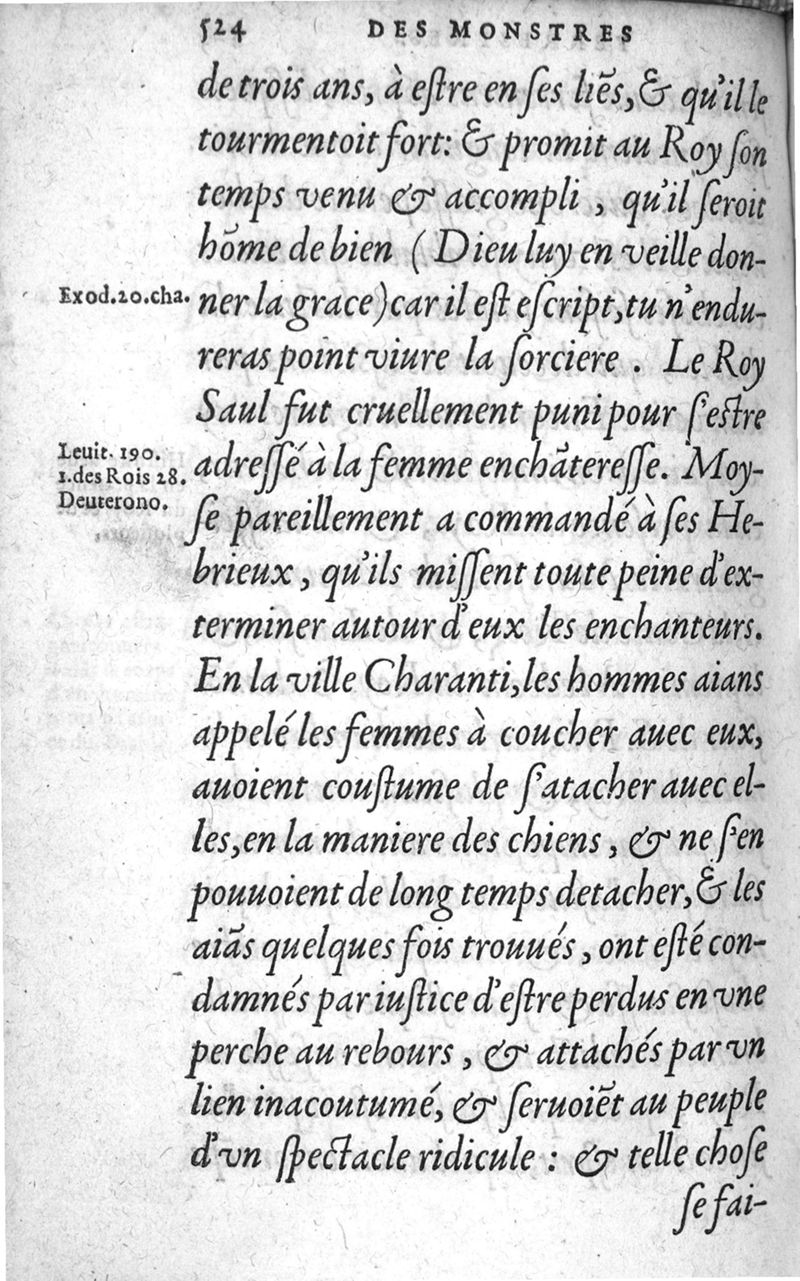 524 DES MONSTRES
de trois ans, à eſtre en ſes liẽs, & qu'il le
tourmentoit fort: & promit au Roy ſon
temps venu & accompli , qu'il ſeroit
hõme de bien (Dieu luy en veille don-
Exod.20.cha. ner la grace) car il eſt eſcript, tu n'endu-
reras point viure la ſorciere . Le Roy
Saul fut cruellement puni pour ſ'eſtre
Leuit. 190.
1.des Rois 28.
Deuterono.
adreſſé à la femme enchãtereſſe. Moy-
ſe pareillement a commandé à ſes He-
brieux, qu'ils miſſent toute peine d'ex-
terminer autour d'eux les enchanteurs.
En la ville Charanti, les hommes aians
appelé les femmes à coucher auec eux,
auoient couſtume de ſ'atacher auec el-
les, en la maniere des chiens , & ne ſ'en
pouuoient de long temps detacher, & les
aiãs quelques fois trouués , ont eſté con-
damnés par iuſtice d'eſtre perdus en vne
perche au rebours , & attachés par vn
lien inacoutumé, & ſeruoiẽt au peuple
d'vn ſpectacle ridicule : & telle choſe
ſe fai-